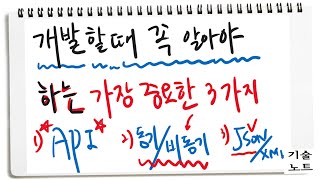 개발할때 꼭 알아야
하는 가장 중요한 3가지
1) API 2) 동기/비동기 3) JSON/XML
기술
노트